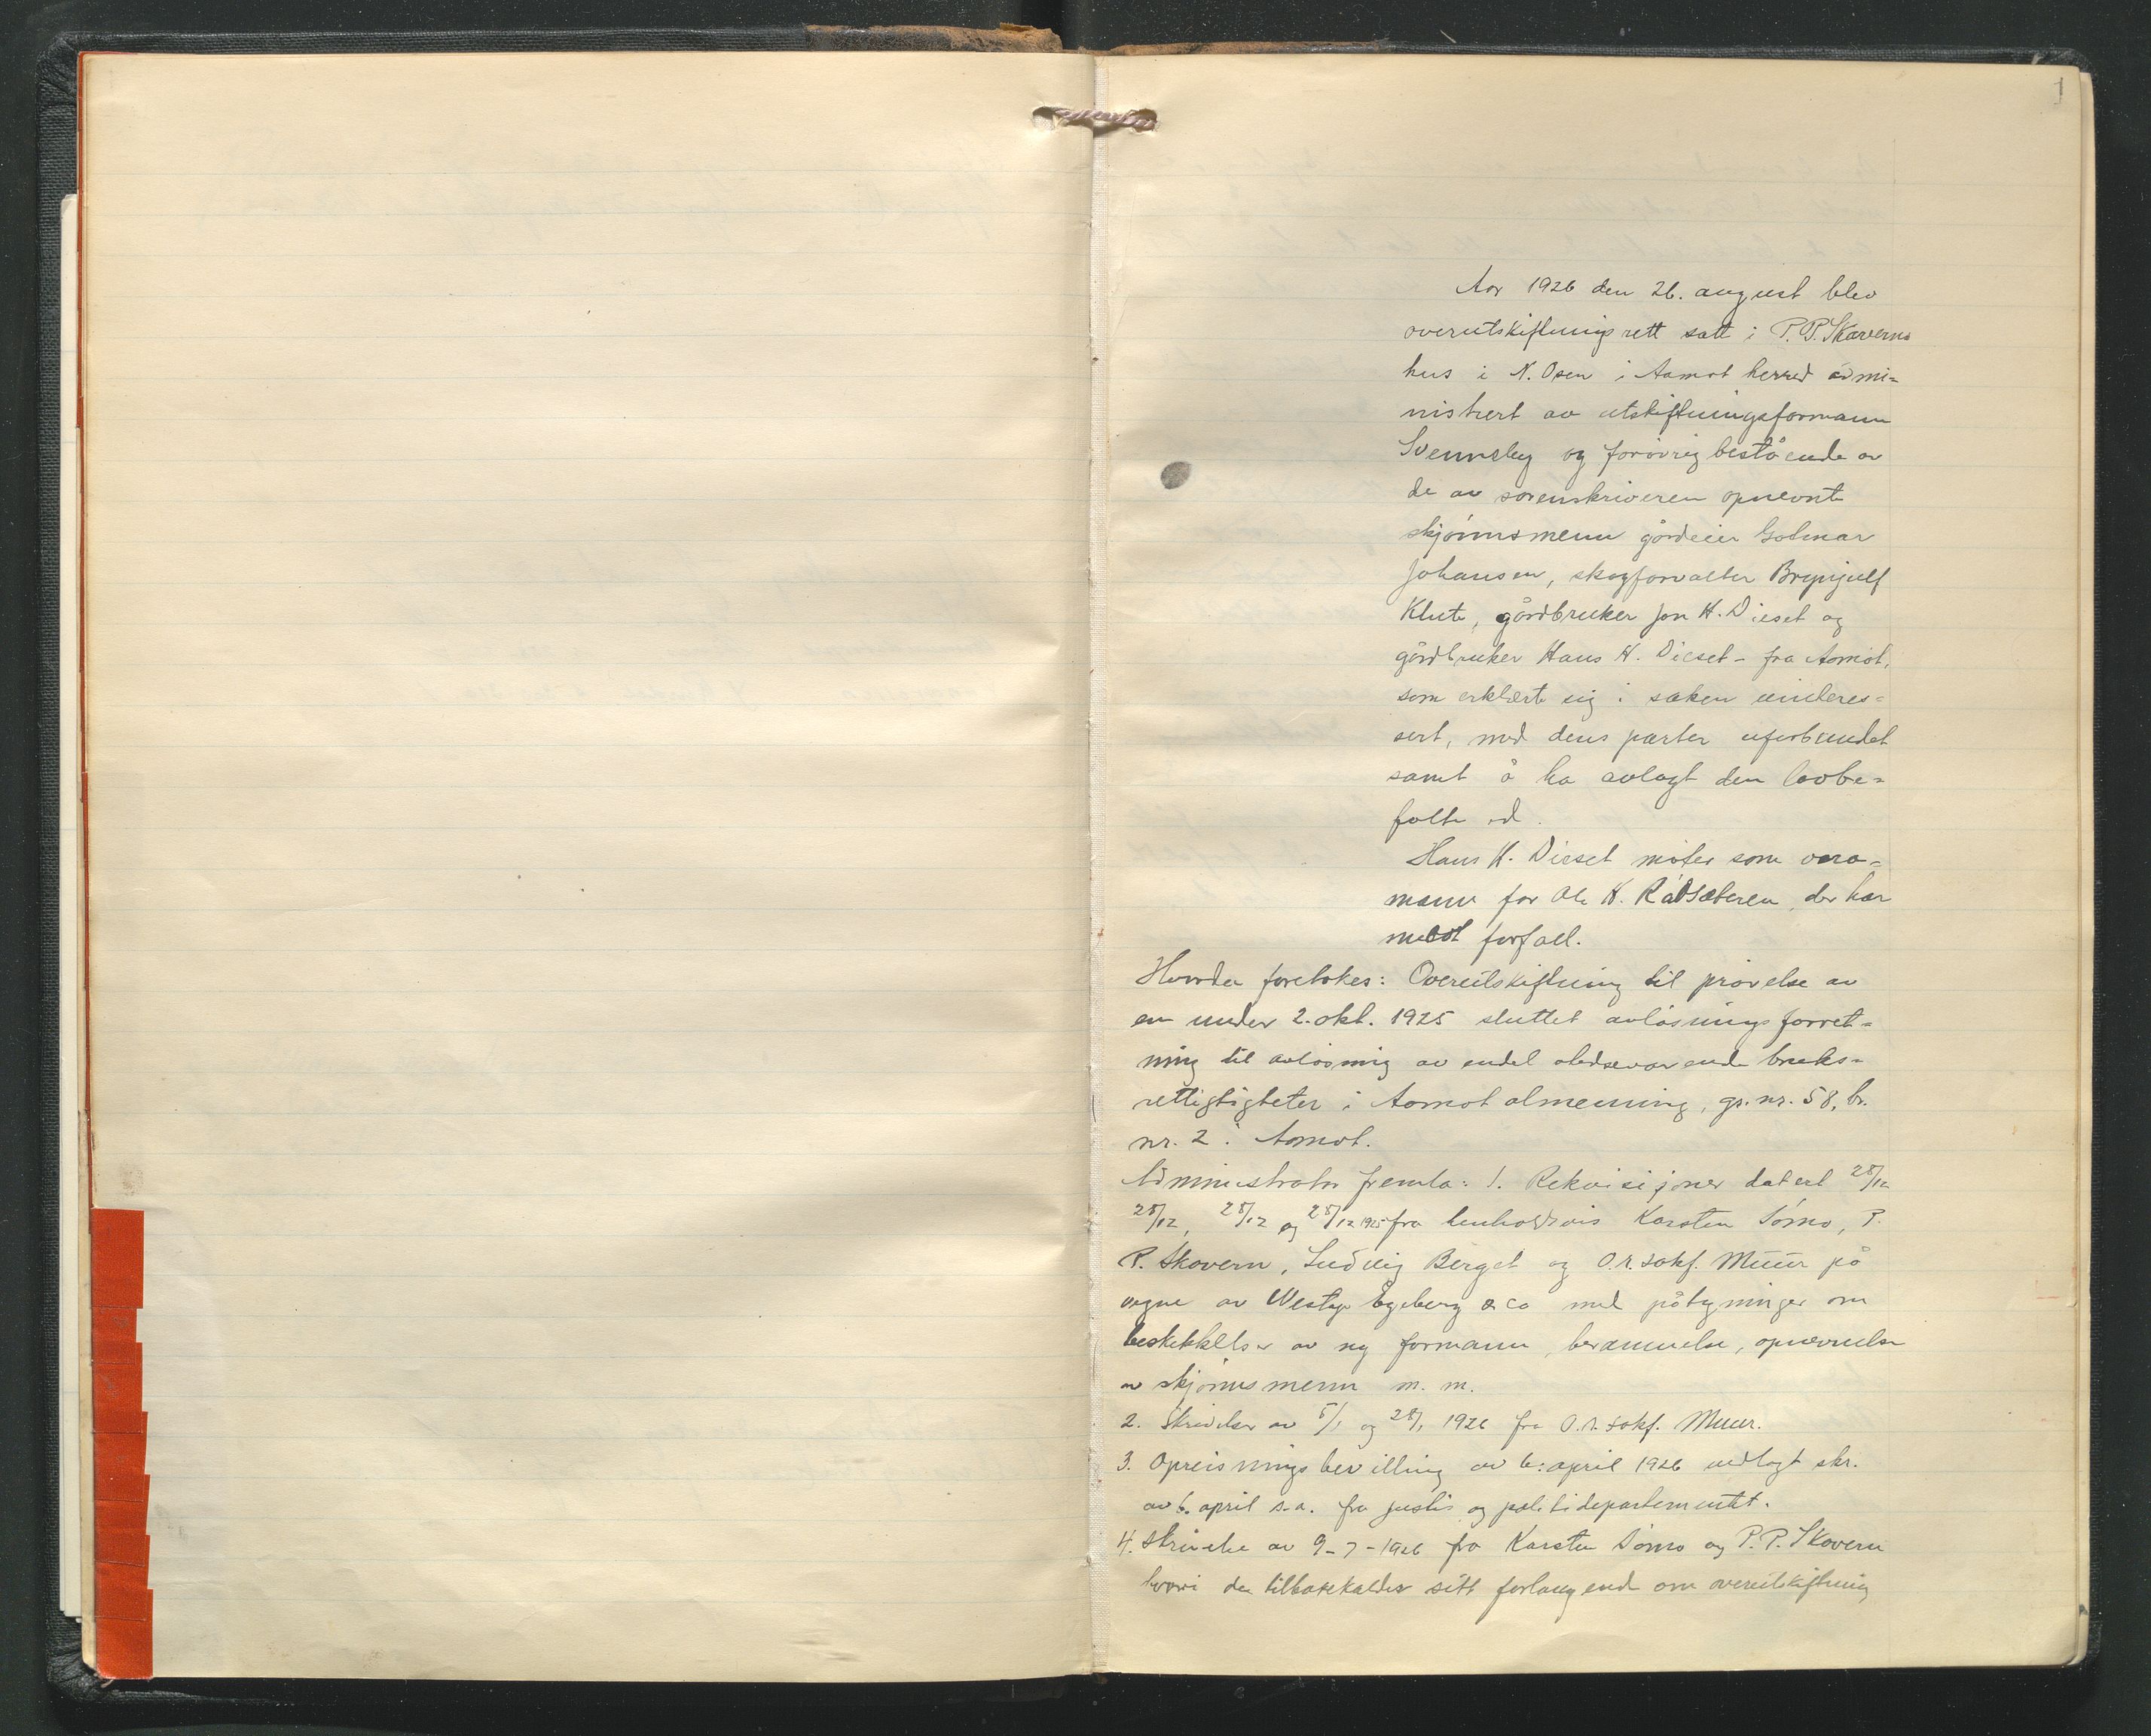 1
Aar 1926 den 26. august blev
overutskiftningsrett satt i P. P. Skaverns
hus i N. Osen i Aamot herred admi=
nistrert av utskiftningsformann
Svennsby og forøvrig bestående av
de av sorenskriveren opnevnte
skjønnsmenn gårdeier Golmar
Johansen, skogforvalter Brynjulf
Klute, gårdbruker Jon H. Dieset og
gårdbruker Hans H. Dieset - fra Aamot,
som erklærte sig i saken uinteres=
sert, med dens parter uforbundet
samt å ha avlagt den lovbe=
falte ed.
Hans H. Dieset møter som vara=
mann for Ole H. Rådsæteren, der har
meldt forfall.
Hvorda foretokes: Overutskiftning til prøvelse av
en under 2. okt. 1925 sluttet avløsningsforret=
ning til avløsning av endel stedsevarende bruks=
rettigtigheter i Aamot almenning, gr. nr. 58, br.
nr. 2 i Aamot.
Administrator fremla: 1. Rekvisisjoner datert 28/12
28/12, 28/12 og 28/12 1925 fra henholdsvis Karsten Sømo, P.
P. Skovern, Ludvig Berget og O.r.sakf. Muur på
vegne av Westye Egeberg & co med påtegninger om
beskikkelse av ny formann, berammelse, opnevnelse
av skjønnsmenn m. m.
2. Skrivelser av 5/1 og 28/1 1926 fra O.r.sakf. Muur.
3. Opreisningsbevilling av 6: april 1926 vedlagt skr.
av 6. april s.a. fra justis og politidepartementet.
4. Skrivelse av 9-7-1926 fra Karsten Sømo og P. P. Skovern
hvori de tilbakekalder sitt forlangende om overutskiftning